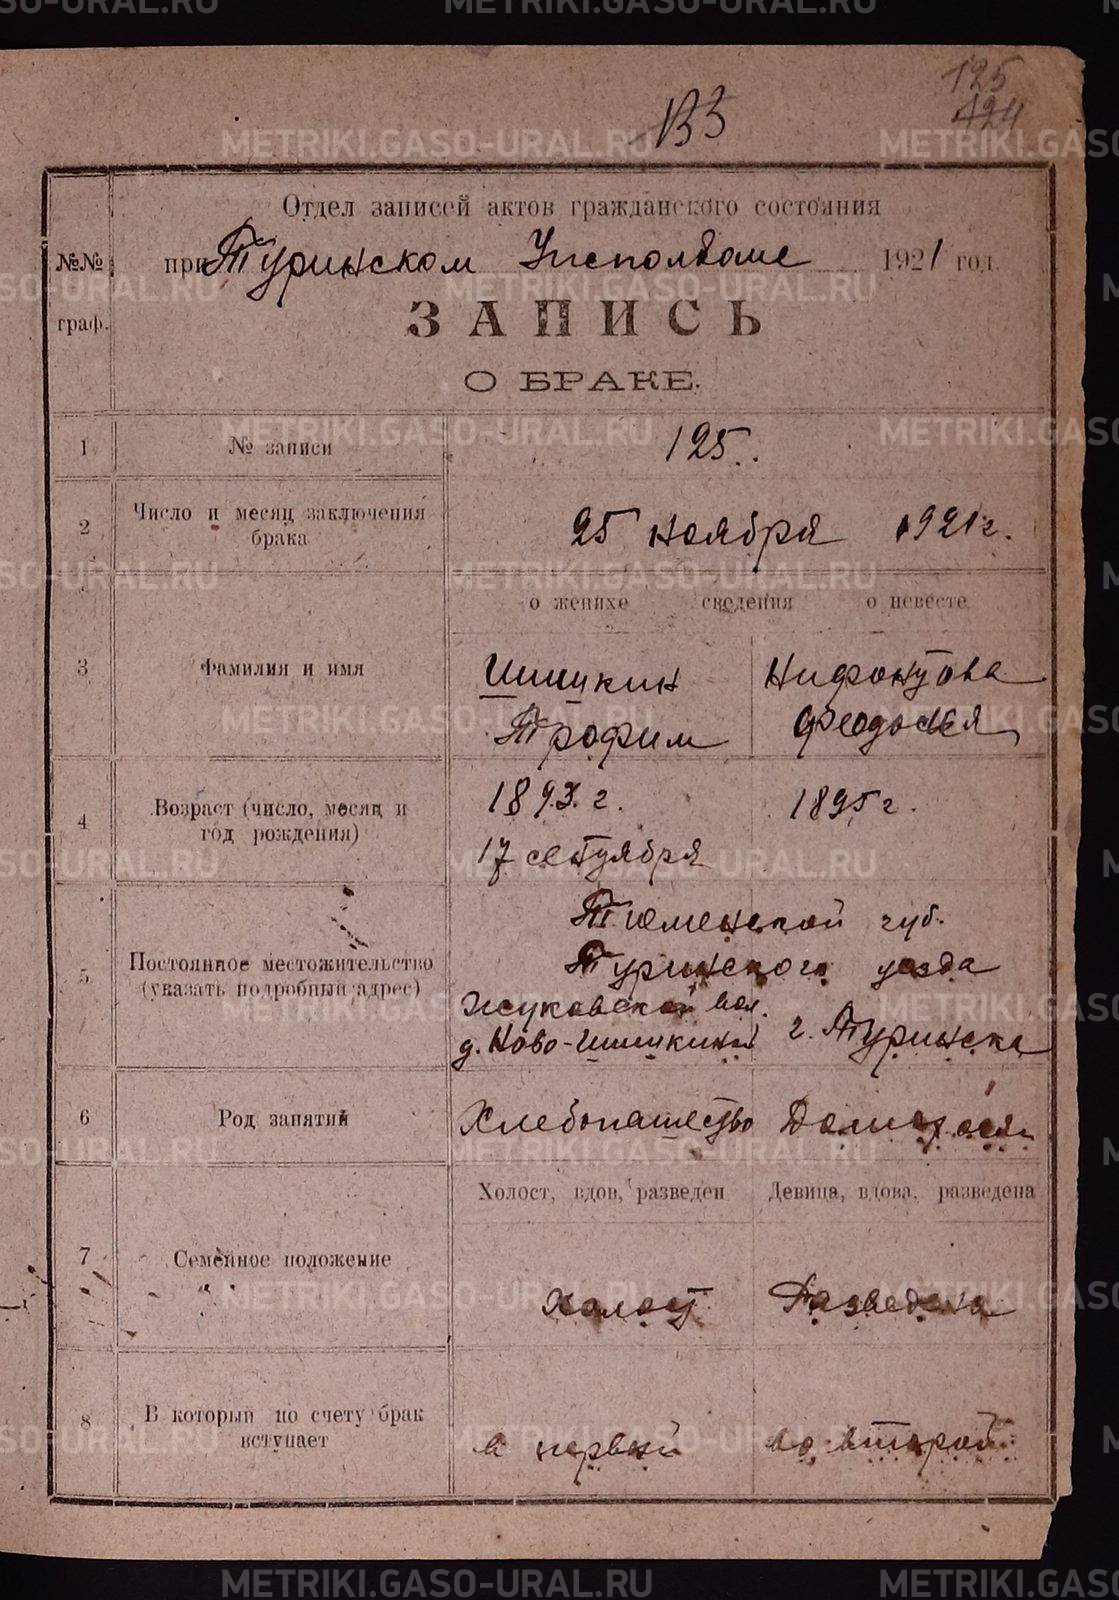 125
124
133
Отдел записей актов гражданского состояния
№№ при Туринском Исполкоме 1921 год.
граф.
ЗАПИСЬ
О БРАКЕ.
1 № записи 125.
2 Число и месяц заключения брака 25 ноября 1921 г.
о женихе сведения о невесте
3 Фамилия и имя Шишкин Нифонтова
Трофим Феодосья
4 Возраст (число, месяц и год рождения) 1893 г. 1895 г.
17 сентября
Тюменской губ.
5 Постоянное местожительство (указать подробный адрес) Туринского уезда
Жуковской вол.
д. Ново-Шишкиной г. Туринска
6 Род занятий Хлебопашество Домашняя
Холост, вдов, разведен Девица, вдова, разведена
7 Семейное положение холост Разведена
8 В который по счету брак вступает в первый во второй
METRIKI.GASO-URAL.RU